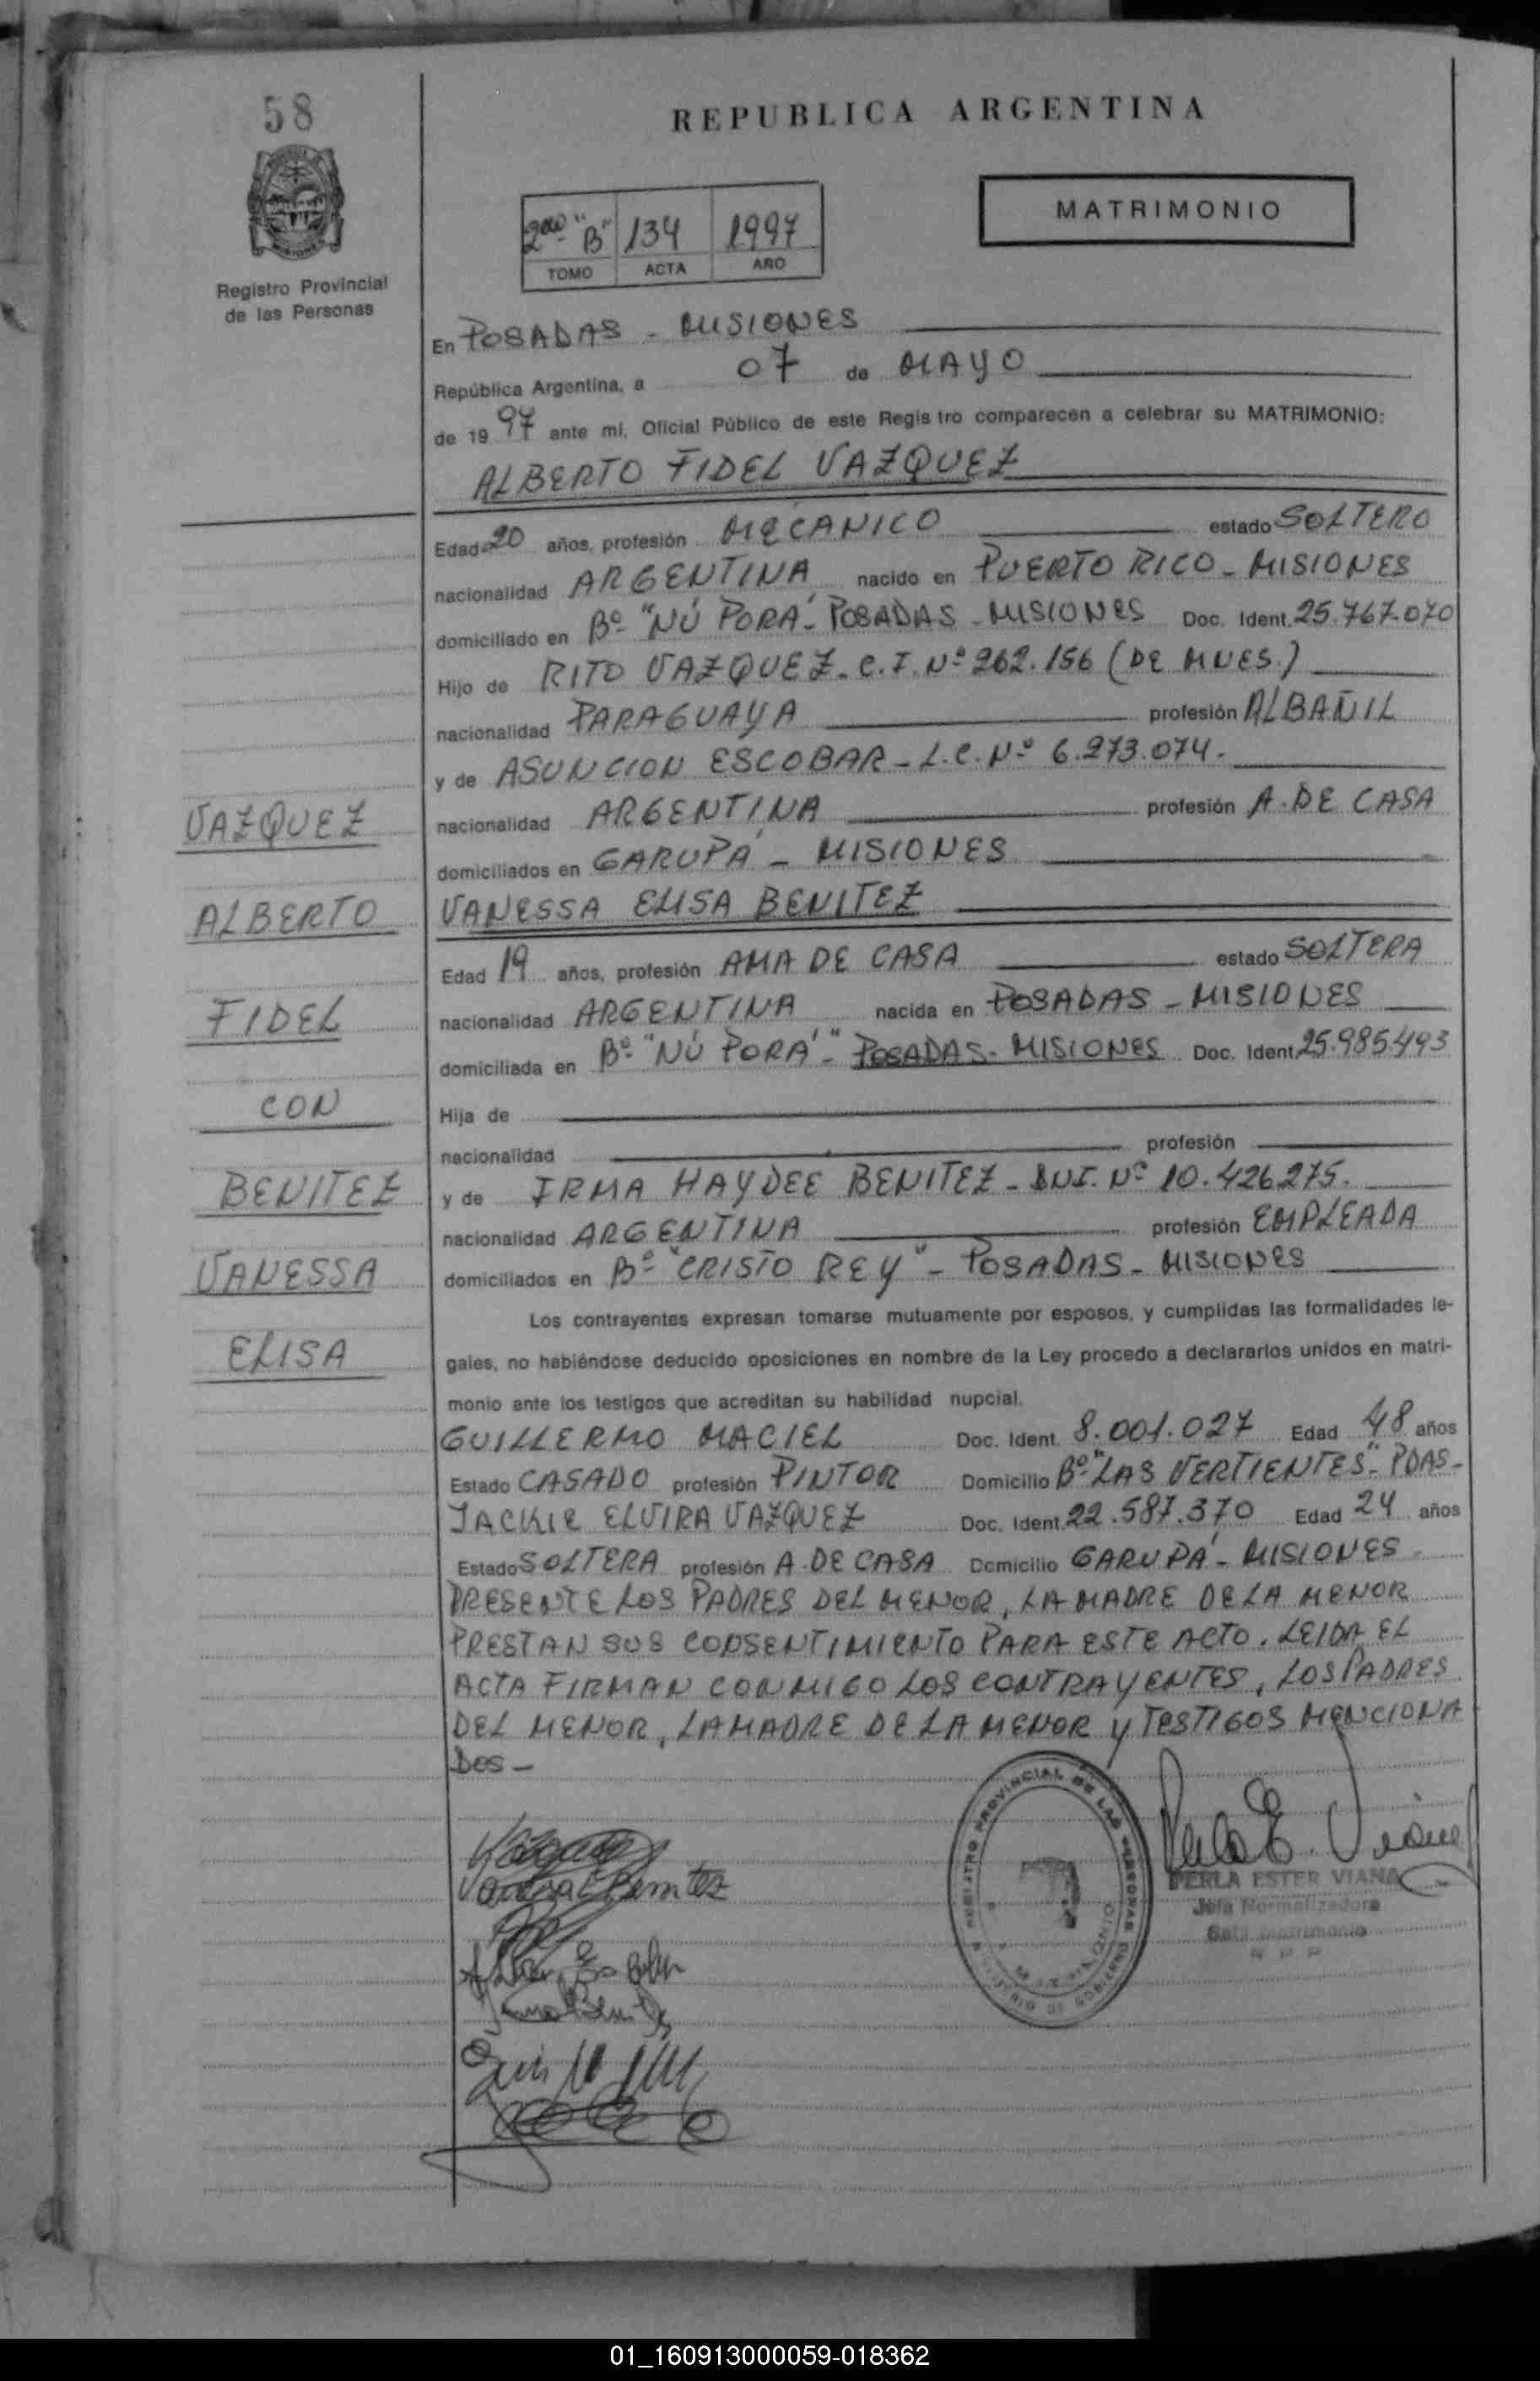 58
REPUBLICA ARGENTINA
MATRIMONIO
2do "B" 134 1997
TOMO ACTA AÑO
Registro Provincial
de las Personas
En POSADAS - MISIONES
República Argentina, a 07 de MAYO
de 1997 ante mi, Oficial Público de este Registro comparecen a celebrar su MATRIMONIO:
ALBERTO FIDEL VAZQUEZ
Edad 20 años, profesión MECANICO estado SOLTERO
nacionalidad ARGENTINA nacido en PUERTO RICO - MISIONES
domiciliado en Bº "ÑÚ PORÁ" - POSADAS - MISIONES Doc. Ident. 25.767.070
Hijo de RITO VAZQUEZ - C.I. Nº 262.156 (DE MNES.)
nacionalidad PARAGUAYA profesión ALBAÑIL
y de ASUNCION ESCOBAR - L.C. Nº 6.273.074.
nacionalidad ARGENTINA profesión A. DE CASA
domiciliados en GARUPÁ - MISIONES
VANESSA ELISA BENITEZ
Edad 19 años, profesión AMA DE CASA estado SOLTERA
nacionalidad ARGENTINA nacida en POSADAS - MISIONES
domiciliada en Bº "ÑÚ PORÁ" - POSADAS - MISIONES Doc. Ident. 25.985.493
Hija de
nacionalidad profesión
y de IRMA HAYDEE BENITEZ - DNI. Nº 10.426.275.
nacionalidad ARGENTINA profesión EMPLEADA
domiciliados en Bº "CRISTO REY" - POSADAS - MISIONES
Los contrayentes expresan tomarse mutuamente por esposos, y cumplidas las formalidades le-
gales, no habiéndose deducido oposiciones en nombre de la Ley procedo a declararlos unidos en matri-
monio ante los testigos que acreditan su habilidad nupcial.
GUILLERMO MACIEL Doc. Ident. 8.001.027 Edad 48 años
Estado CASADO profesión PINTOR Domicilio Bº "LAS VERTIENTES" - PDAS -
JACKIE ELVIRA VAZQUEZ Doc. Ident. 22.587.370 Edad 24 años
Estado SOLTERA profesión A. DE CASA Domicilio GARUPÁ - MISIONES -
PRESENTE LOS PADRES DEL MENOR, LA MADRE DE LA MENOR
PRESTAN SUS CONSENTIMIENTO PARA ESTE ACTO. LEIDA EL
ACTA FIRMAN CONMIGO LOS CONTRAYENTES, LOS PADRES
DEL MENOR, LA MADRE DE LA MENOR Y TESTIGOS MENCIONA
DOS -
VAZQUEZ
ALBERTO
FIDEL
CON
BENITEZ
VANESSA
ELISA
REGISTRO PROVINCIAL DE LAS PERSONAS
MINISTERIO DE GOBIERNO
MATRIMONIO
Perla E. Viana
PERLA ESTER VIANA
Jefa Normalizadora
Secc. Matrimonio
Benitez
01_160913000059-018362